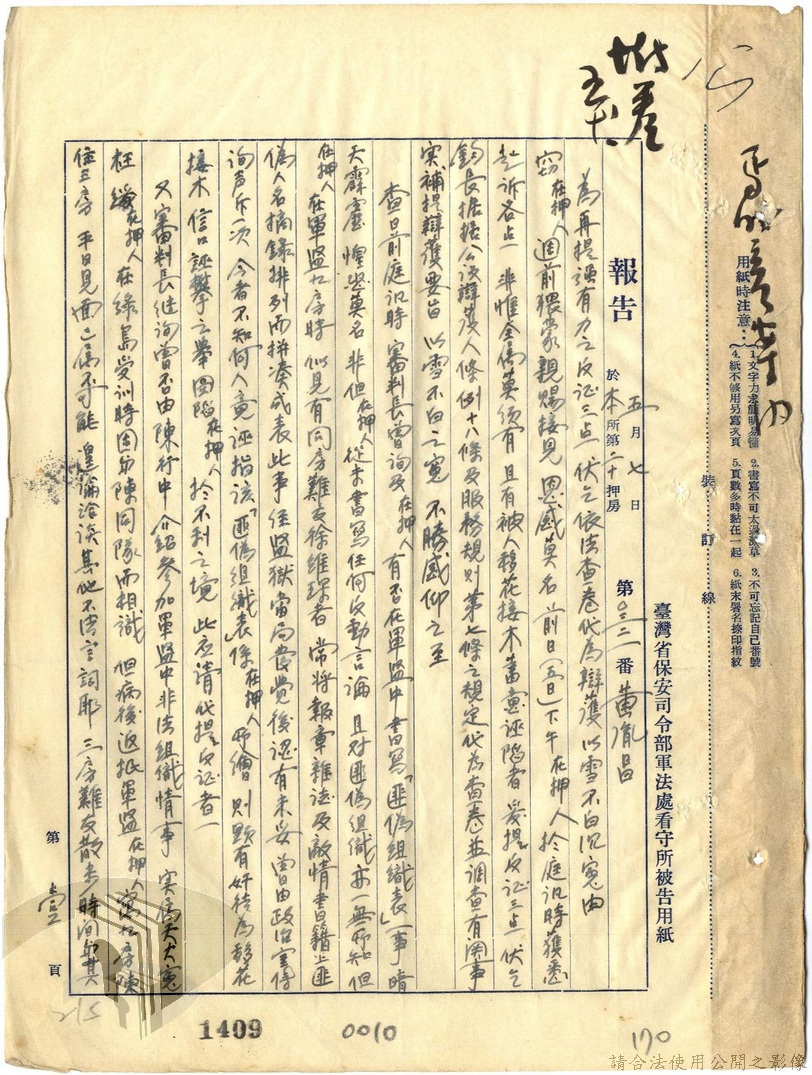 臺灣省保安司令部軍法處看守所被告用紙
用紙時注意：
1. 文字力求簡明易懂 2. 書寫不可太過潦草 3. 不可忘記自己番號
4. 紙不够用另寫次頁 5. 頁數多時黏在一起 6. 紙末署名捺印指紋
裝訂線
附卷
報告 於本所第二十押房 五月七日 第 番 黃胤昌
為再提強有力之反証三点伏乞依法查卷代為辯護以雪不白沉冤由
窃在押人週前猥蒙親賜接見恩感莫名前日(五日)下午在押人於庭訊時獲悉
起訴各点非惟全屬莫須有且有被人移花接木蓄意誣陷者爰提反証三点伏乞
鈞長根据公設辯護人條例十八條及服務規則第七條之規定代為查卷並調查有関事
实補提辯護要旨以雪不白之冤不勝感仰之至
查日前庭訊時審判長曾詢及在押人有否在軍監中書寫「匪偽組織表」一事晴
天霹靂惶恐莫名非但在押人從未書寫任何反動言論且对匪偽組織亦一無所知但
在押人在軍監九房時似見有同房難友徐維琛者常將報章雜誌及敵情書籍上匪
偽人名摘錄排列而拼凑成表此事經監獄當局發覺後認有未妥曾由政治室傳
詢声斥一次今者不知何人竟誣指該「匪偽組織表」係在押人所繪則顯有奸徒為移花
接木信口誣攀之舉圖陷在押人於不利之境此應請代提反証者一
又審判長继詢曾否由陳行中介紹參加軍監中非法組織情事实為天大冤
枉緣在押人在綠島受訓時因与陳同隊而相識但病後返抵軍監在押人寓九房陳
住三房平日見面已属不可能遑論洽談其他不法言詞耶三房難友散步時间与其
第壹頁
2/5
1409
0010
170
請合法使用公開之影像